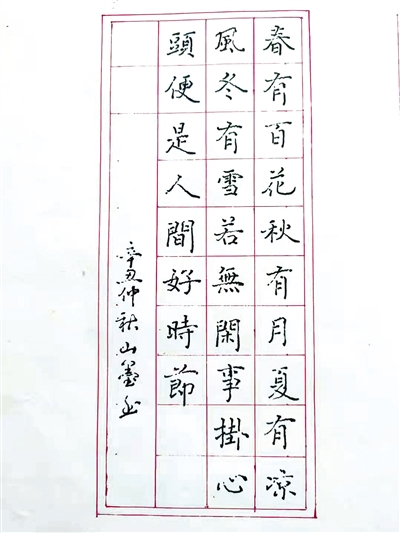 春有百花秋有月夏有涼
風冬有雪若無閑事掛心
頭便是人間好時節
辛丑仲秋山墨書